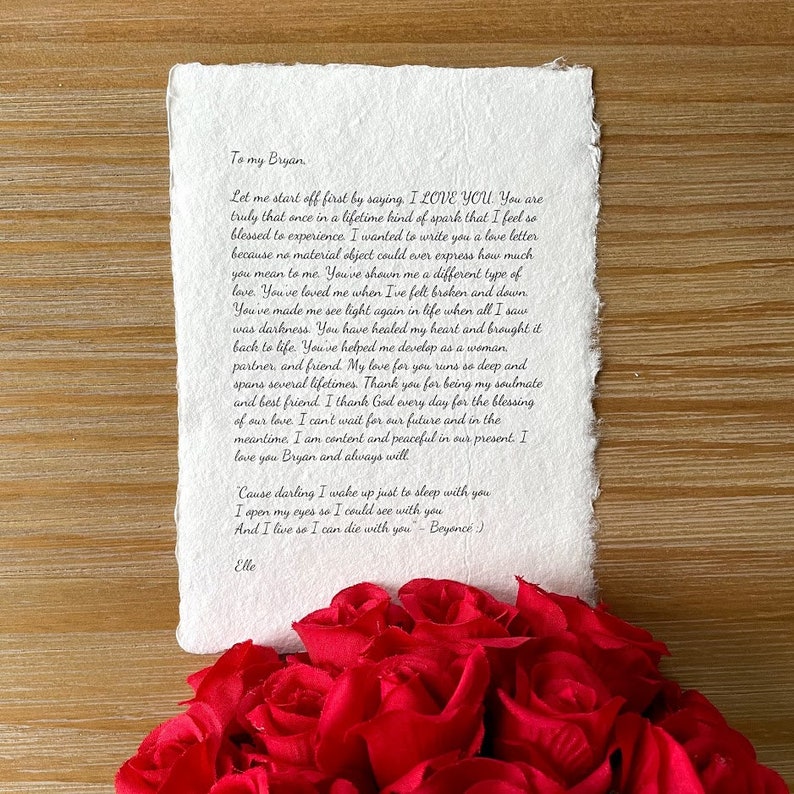 To my Bryan,
Let me start off first by saying, I LOVE YOU. You are
truly that once in a lifetime kind of spark that I feel so
blessed to experience. I wanted to write you a love letter
because no material object could ever express how much
you mean to me. You've shown me a different type of
love. You've loved me when I've felt broken and down.
You've made me see light again in life when all I saw
was darkness. You have healed my heart and brought it
back to life. You've helped me develop as a woman,
partner, and friend. My love for you runs so deep and
spans several lifetimes. Thank you for being my soulmate
and best friend. I thank God every day for the blessing
of our love. I can't wait for our future and in the
meantime, I am content and peaceful in our present. I
love you Bryan and always will.
"Cause darling I wake up just to sleep with you
I open my eyes so I could see with you
And I live so I can die with you" - Beyoncé ;)
Elle